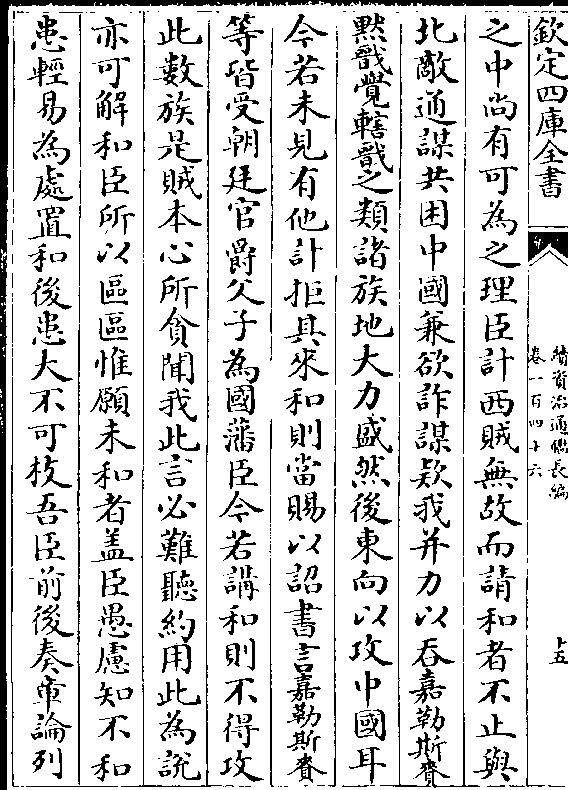 欽定四庫全書
續資治通鑑長編
卷一百四十六
十五
之中尚有可為之理臣計西賊無故而請和者不止與
北敵通謀共困中國兼欲詐謀欵我并力以吞嘉勒斯賚
黙戩覺轄戩之類諸族地大力盛然後東向以攻中國耳
今若未見有他計拒其來和則當賜以詔書言嘉勒斯賚
等皆受朝廷官爵父子為國藩臣今若講和則不得攻
此數族是賊本心所貪聞我此言必難聽約用此為説
亦可解和臣所以區區惟願未和者盖臣愚慮知不和
患輕易為處置和後患大不可枝吾臣前後奏章論列